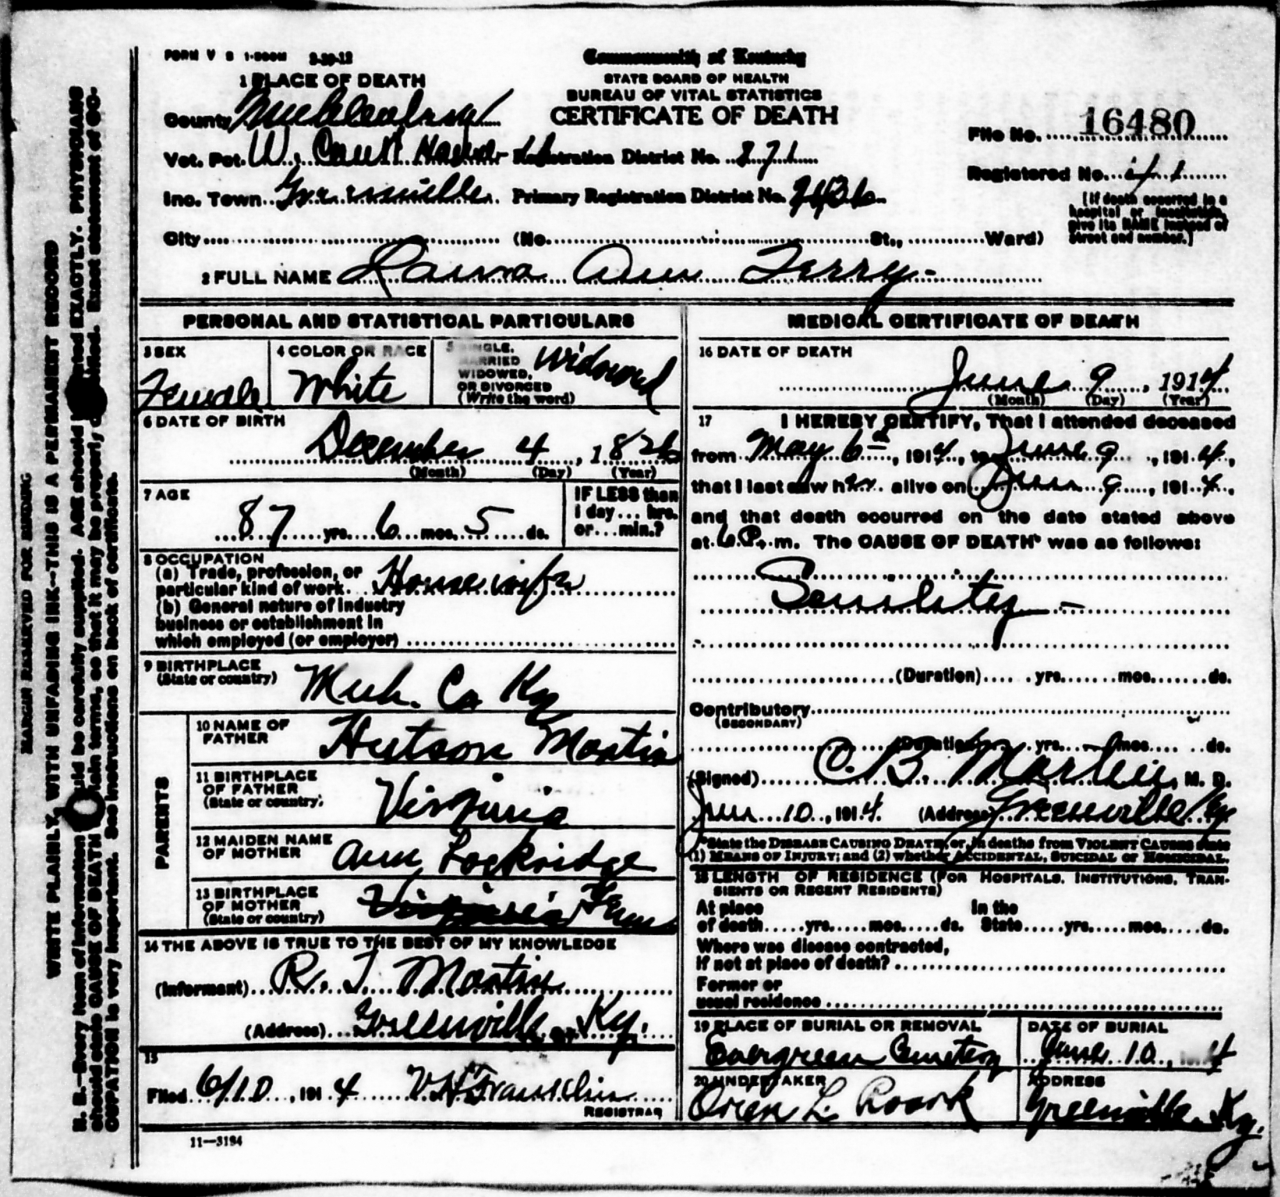 FORM V S 1-500M 2-20-12
Commonwealth of Kentucky
STATE BOARD OF HEALTH
BUREAU OF VITAL STATISTICS
CERTIFICATE OF DEATH
1 PLACE OF DEATH
County
Vot. Pct. W. Court House Registration District No. 871
Inc. Town Greenville Primary Registration District No.
City (No. St., Ward)
File No. 16480
Registered No. 41
[If death occurred in a hospital or institution, give its NAME instead of street and number.]
2 FULL NAME Laura Ann Terry
PERSONAL AND STATISTICAL PARTICULARS
3 SEX Female
4 COLOR OR RACE White
5 SINGLE, MARRIED WIDOWED, OR DIVORCED (Write the word) Widowed
6 DATE OF BIRTH
December 4, 1826
(Month) (Day) (Year)
7 AGE
87 yrs. 6 mos. 5 ds.
IF LESS than 1 day... hrs. or... min.?
8 OCCUPATION
(a) Trade, profession, or
particular kind of work Housewife
(b) General nature of industry
business or establishment in
which employed (or employer)
9 BIRTHPLACE
(State or country) Muh. Co Ky
PARENTS
10 NAME OF FATHER Hutson Martin
11 BIRTHPLACE OF FATHER (State or country) Virginia
12 MAIDEN NAME OF MOTHER Ann Lockridge
13 BIRTHPLACE OF MOTHER (State or country) Virginia
14 THE ABOVE IS TRUE TO THE BEST OF MY KNOWLEDGE
(Informant) R. T. Martin
(Address) Greenville Ky.
15
Filed 6/10, 1914 V. H. Franklin
REGISTRAR
11—3194
MEDICAL CERTIFICATE OF DEATH
16 DATE OF DEATH
June 9, 1914
(Month) (Day) (Year)
17 I HEREBY CERTIFY, That I attended deceased
from May 6th, 1914, to June 9, 1914,
that I last saw her alive on June 9, 1914,
and that death occurred on the date stated above
at 6 P. m. The CAUSE OF DEATH was as follows:
Senility
(Duration) yrs. mos. ds.
Contributory
(SECONDARY)
(Duration) yrs. mos. ds.
(Signed) C. B. Martin, M. D.
June 10, 1914 (Address) Greenville Ky
*State the DISEASE CAUSING DEATH, or, in deaths from VIOLENT CAUSES state
(1) MEANS OF INJURY; and (2) whether ACCIDENTAL, SUICIDAL OR HOMICIDAL.
18 LENGTH OF RESIDENCE (FOR HOSPITALS, INSTITUTIONS, TRAN-
SIENTS OR RECENT RESIDENTS)
At place In the
of death yrs. mos. ds. State yrs. mos. ds.
Where was disease contracted,
if not at place of death?
Former or
usual residence
19 PLACE OF BURIAL OR REMOVAL
Evergreen Cemetery
DATE OF BURIAL
June 10, 1914
20 UNDERTAKER
Orien L. Roark
ADDRESS
Greenville Ky.
MARGIN RESERVED FOR BINDING
WRITE PLAINLY, WITH UNFADING INK—THIS IS A PERMANENT RECORD
N. B.—Every item of information should be carefully supplied. AGE should be stated EXACTLY. PHYSICIANS
should state CAUSE OF DEATH in plain terms, so that it may be properly classified. Exact statement of OC-
CUPATION is very important. See instructions on back of certificate.